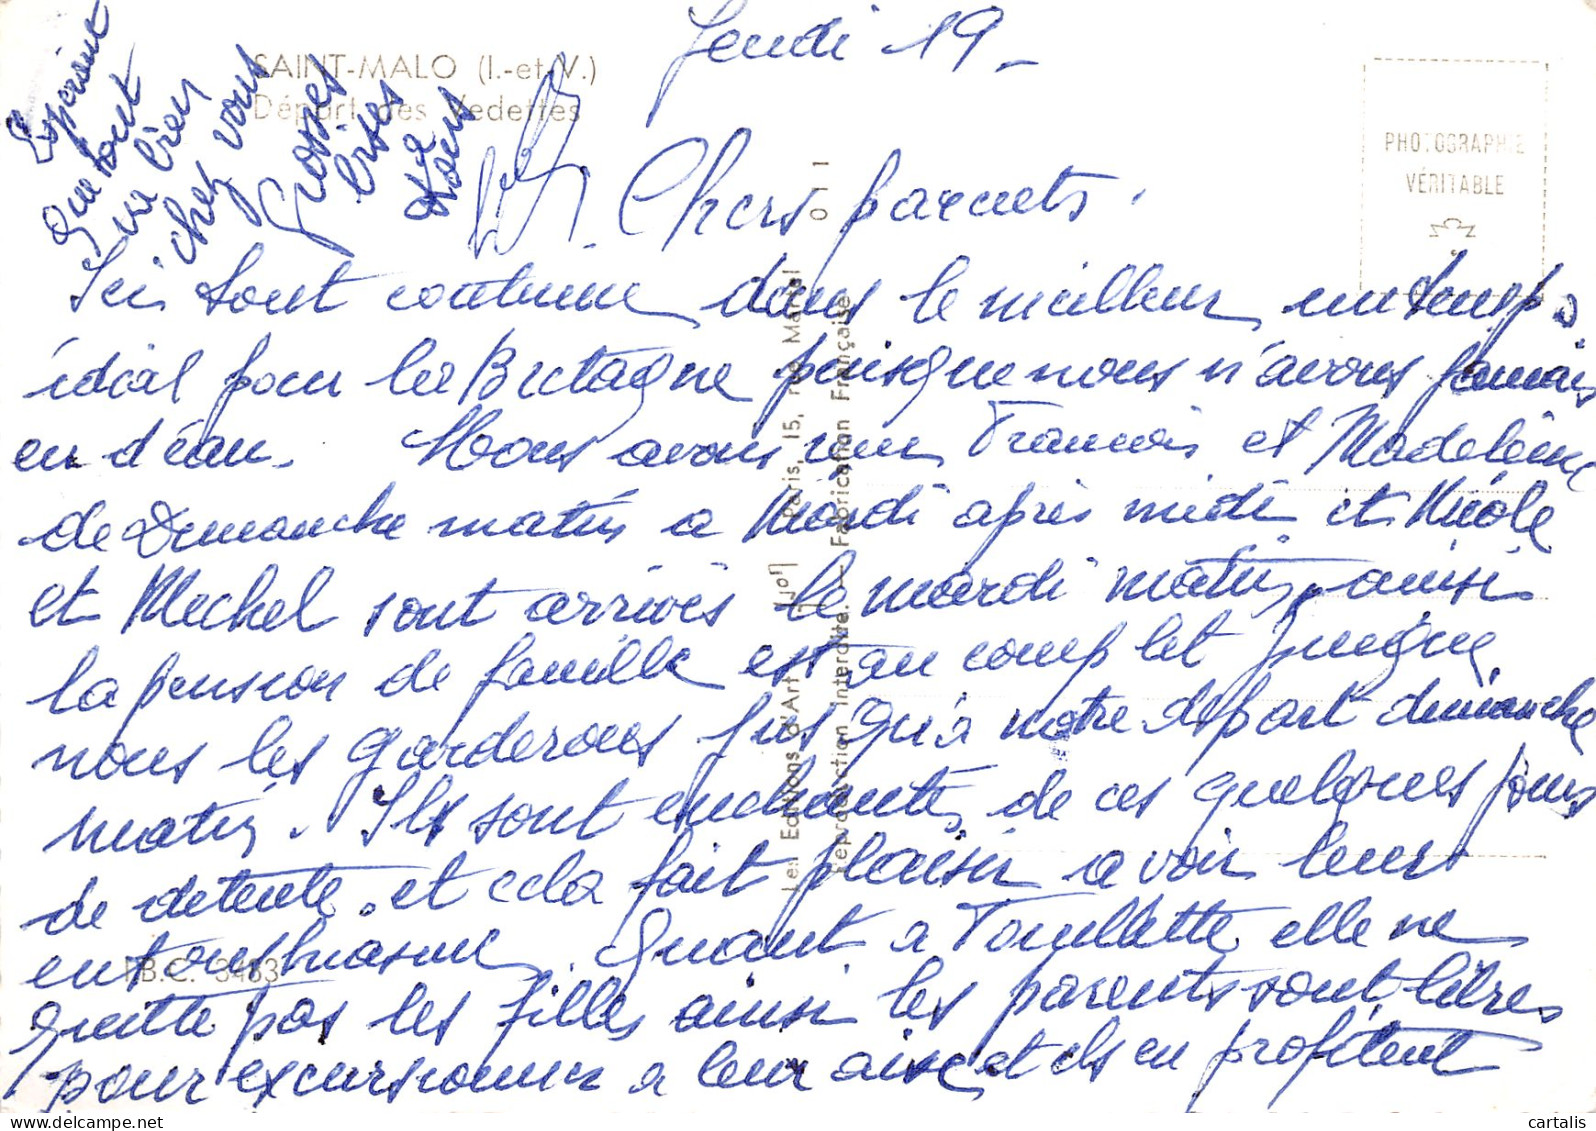 Jeudi 19 -
SAINT-MALO (I.-et-V.)
Départ des Vedettes
PHOTOGRAPHIE
VÉRITABLE
Chers parents.
Ici tout continue dans le meilleur, un temps
idéal pour la Bretagne puisque nous n'avons jamais
eu d'eau. Nous avons eu Francois et Madeleine
de Dimanche matin a Mardi après midi et Nicole
et Michel sont arrivés le mardi matin, ainsi
la pension de famille est au complet puisque
nous les garderons jusqu'à notre départ dimanche
matin. Ils sont enchantés de ces quelques jours
de détente, et cela fait plaisir a voir leur
entoushiasme. Quant a elle ne
quitte pas les filles ainsi les parents sont libres
pour excursionner a leur aise et ils en profitent
Espérant
que tout
va bien
chez vous
Grosses
bises
de
nous
Les Editions d'Art Paris, 15, rue Martel 011
Reproduction Interdite. Fabrication Française
B.C. 3483
www.delcampe.net
cartalis